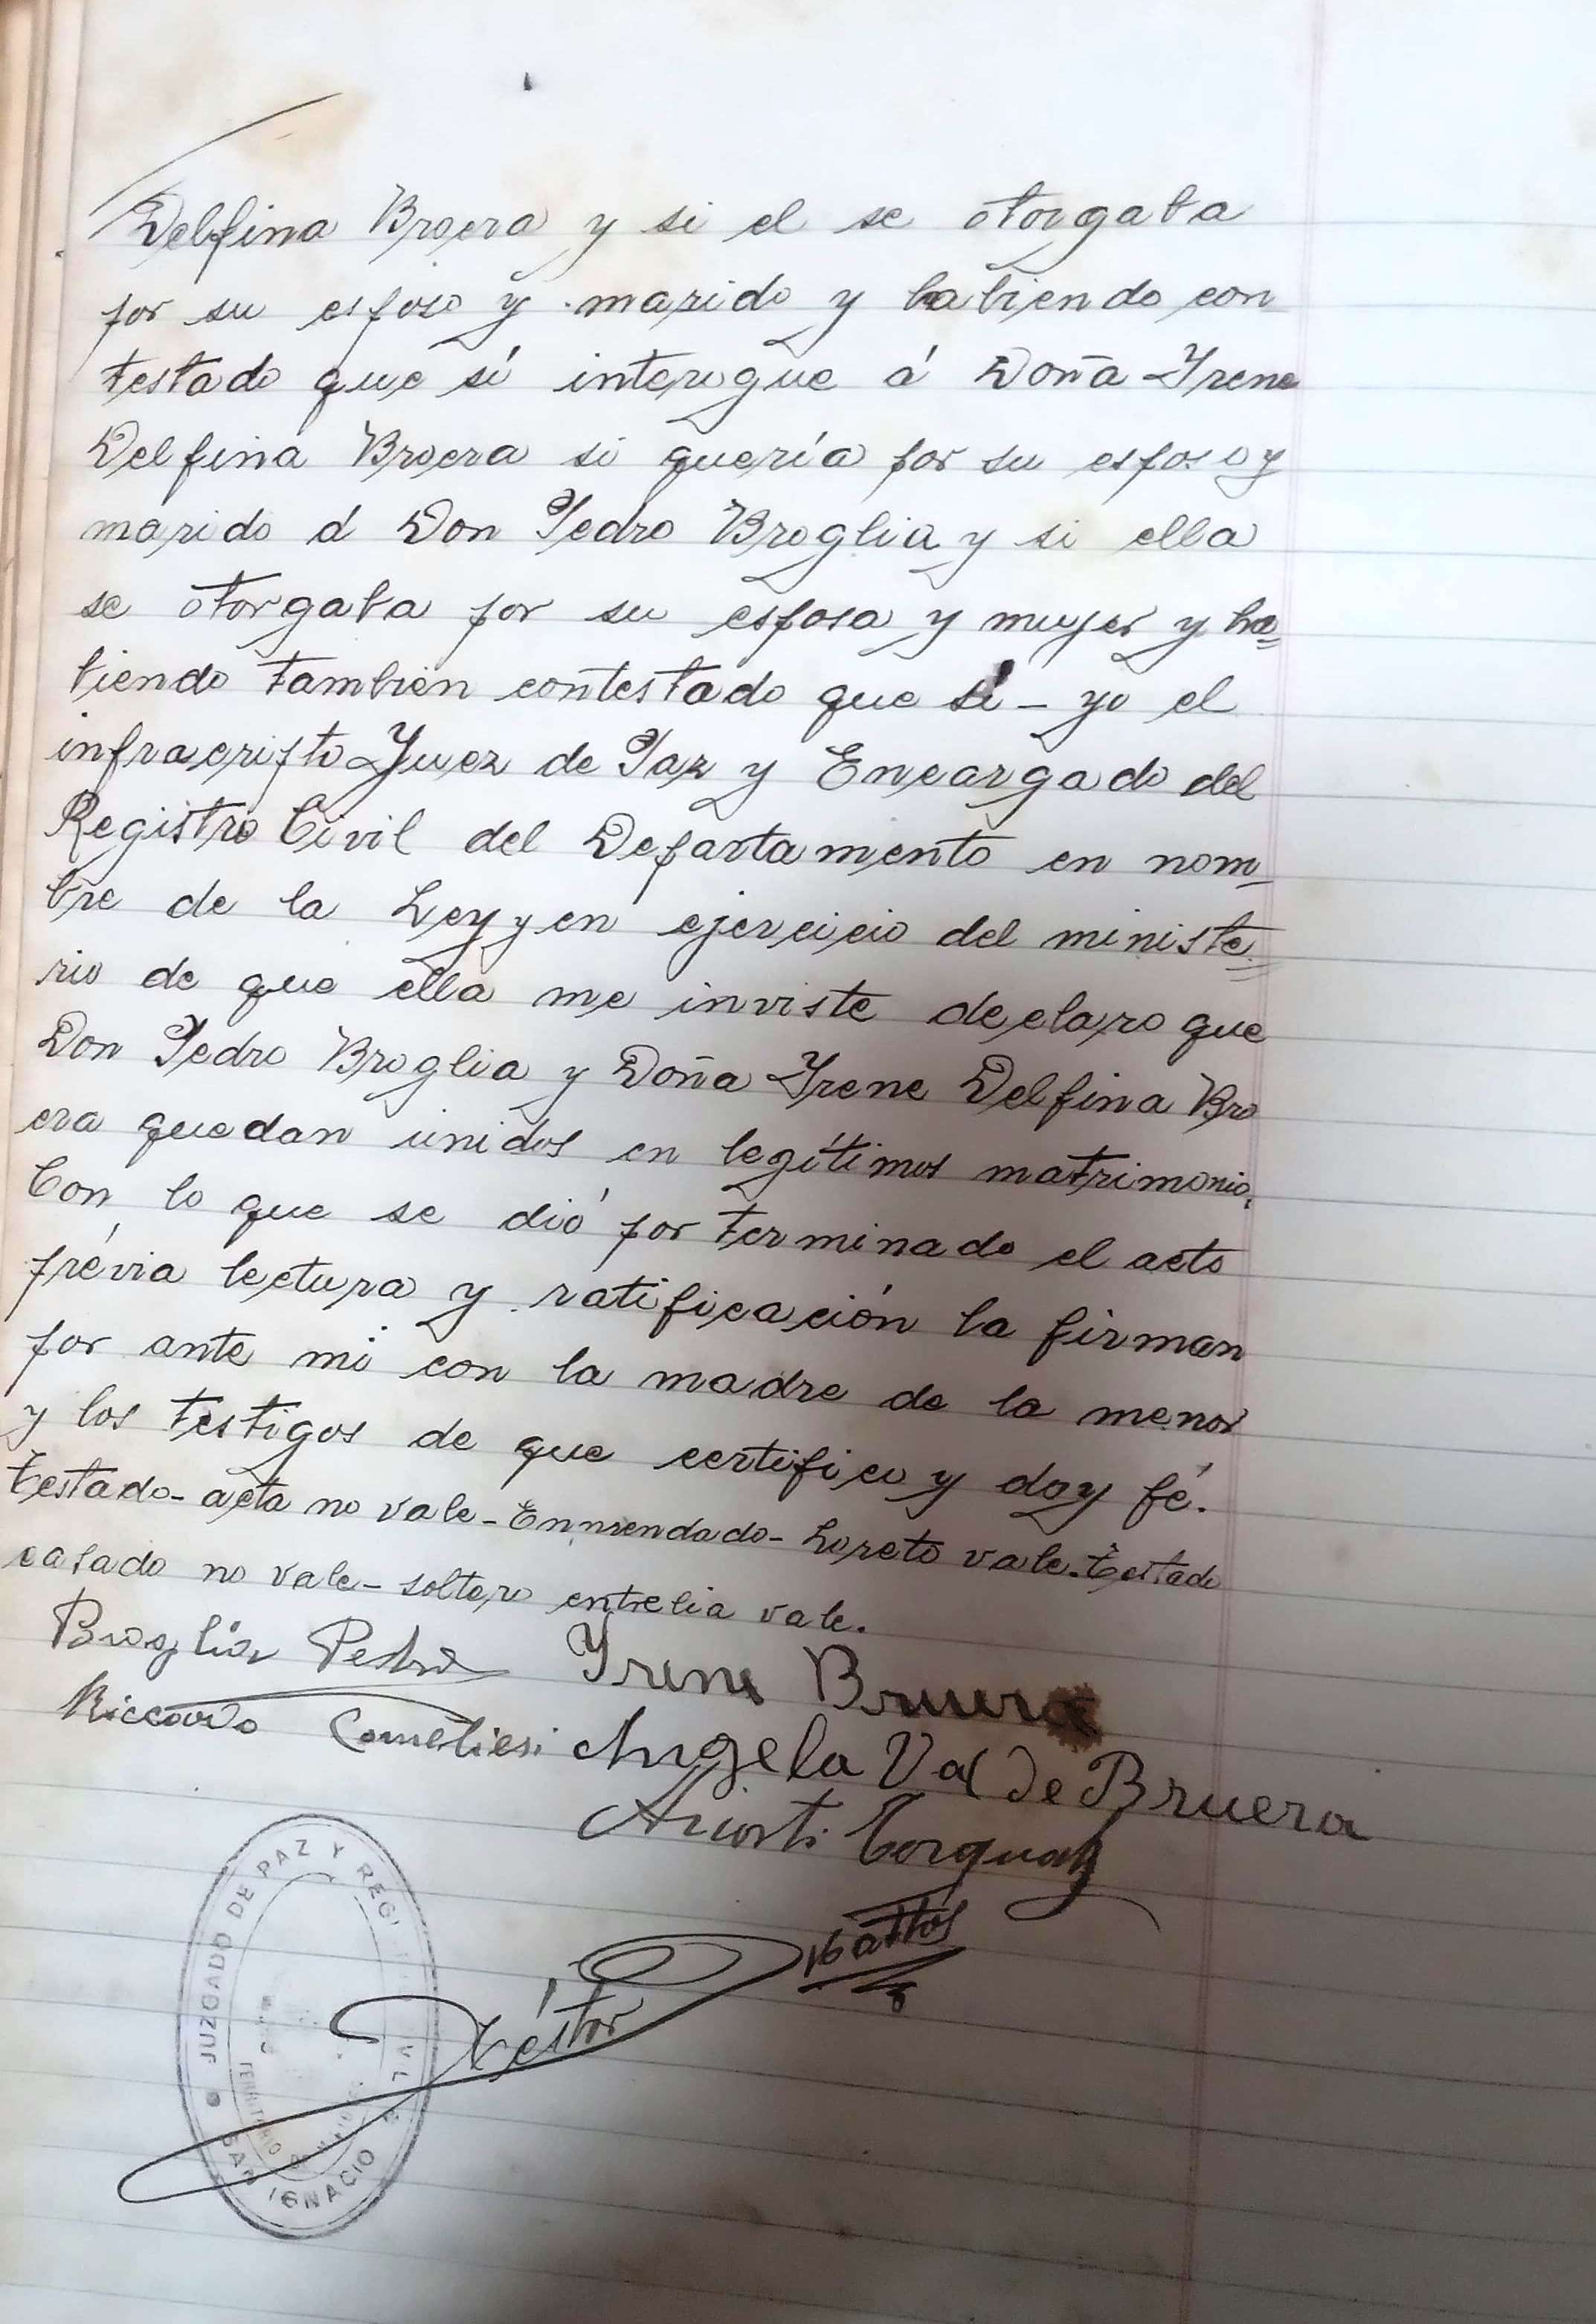 Delfina Broera y si el se otorgaba
por su esposo y marido y habiendo con
testado que sí interogue á Doña Irene
Delfina Broera si quería por su esposo y
marido á Don Pedro Broglia y si ella
se otorgaba por su esposa y mujer y ha=
biendo tambien contestado que sí - yo el
infrascripto Juez de Paz y Encargado del
Registro Civil del Departamento en nom-
bre de la Ley y en ejercicio del ministe=
rio de que ella me inviste declaro que
Don Pedro Broglia y Doña Irene Delfina Bro
era quedan unidos en legítimos matrimonio.
Con lo que se dió por terminado el acto
prévia lectura y ratificación la firman
por ante mi con la madre de la menor
y los testigos de que certifico y doy fé.
Testado - acta no vale - Enmendado - Loreto vale. Testado
casado no vale - soltero entrelia vale.
Broglia Pedro Irene Bruera
Riccardo Angela Val de Bruera
Ariosti Torquato
Néstor Battos
JUZGADO DE PAZ Y REGISTRO CIVIL
SAN IGNACIO
TERRITORIO